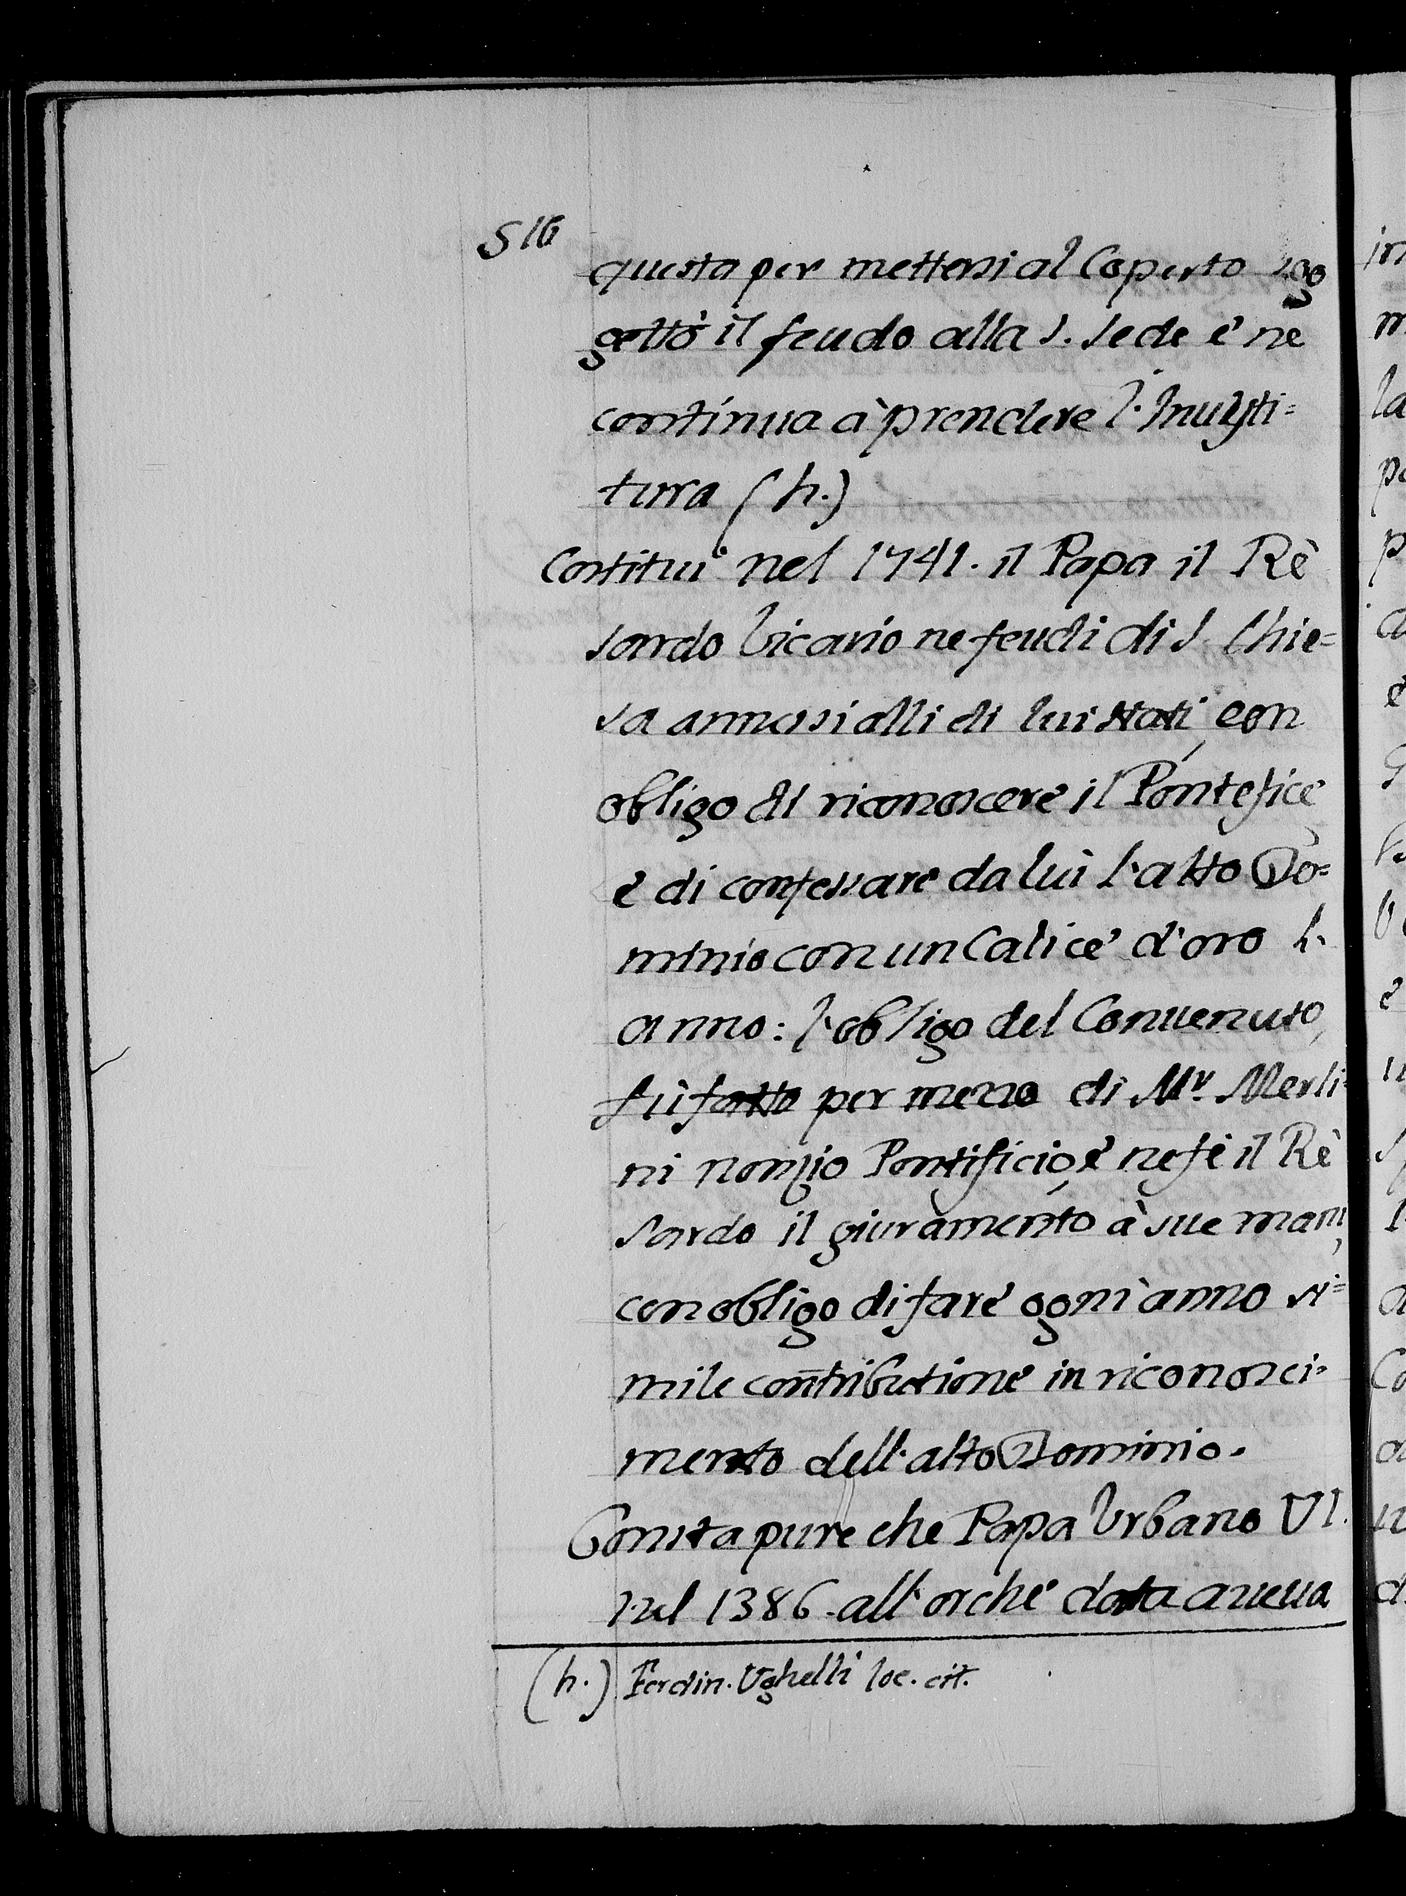 516
questa per mettersi al Coperto sog
gettò il feudo alla S. Sede e ne
continua à prendere l'Inuesti=
tura (h.)
Costitui nel 1741. il Papa il Rè
Sardo Vicario ne feudi di S. Chie=
sa annessi alli di lui stati, con
obligo di riconoscere il Pontefice
e di confessare da lui l'alto Do=
minio con un Calice d'oro l'
anno: l'obligo del Conuenuto,
fù fatto per mezzo di Mr. Merli=
ni nonzio Pontificio, e ne fè il Rè
Sardo il giuramento à sue mani,
con obligo di fare ogni anno si=
mile contributione in riconosci=
mento dell'alto Dominio.
Consta pure che Papa Vrbano VI.
nel 1386. all'orche data aueua
(h.) Ferdin. Ughelli loc. cit.